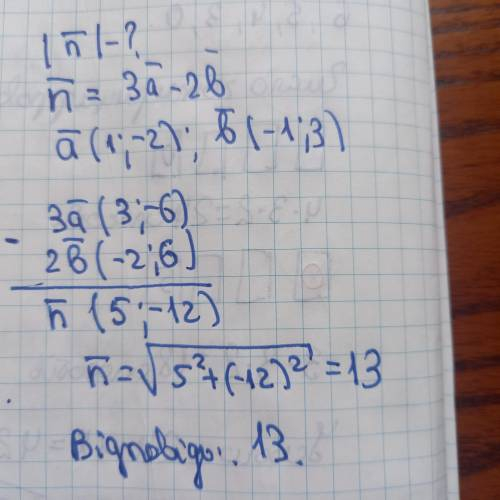 |n̅| - ?
n̅ = 3a̅ - 2b̅
a̅ (1; -2); b̅ (-1; 3)
3a̅ (3; -6)
-
2b̅ (-2; 6)
n̅ (5; -12)
n̅ = √5² + (-12)² = 13
Відповідь: 13.